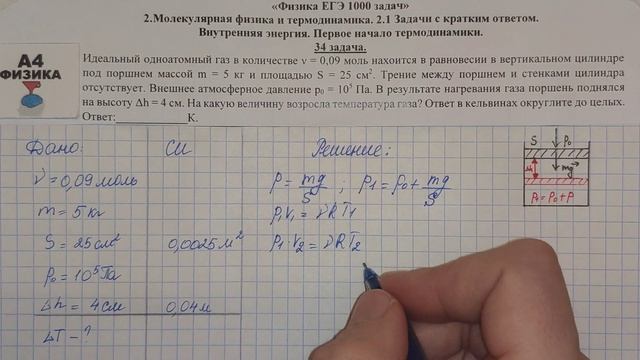 «Физика ЕГЭ 1000 задач»
2.Молекулярная физика и термодинамика. 2.1 Задачи с кратким ответом.
Внутренняя энергия. Первое начало термодинамики.
34 задача.
А4
ФИЗИКА
Идеальный одноатомный газ в количестве ν = 0,09 моль находится в равновесии в вертикальном цилиндре
под поршнем массой m = 5 кг и площадью S = 25 см². Трение между поршнем и стенками цилиндра
отсутствует. Внешнее атмосферное давление p₀ = 10⁵ Па. В результате нагревания газа поршень поднялся
на высоту Δh = 4 см. На какую величину возросла температура газа? Ответ в кельвинах округлите до целых.
Ответ:____________К.
Дано: СИ Решение:
ν = 0,09 моль
m = 5 кг
S = 25 см² 0,0025 м²
p₀ = 10⁵ Па
Δh = 4 см 0,04 м
ΔT - ?
p = mg/S ; p₁ = p₀ + mg/S
p₁V₁ = νRT₁
p₁·V₂ = νRT₂
S p₀
mg
p₁ = p₀ + p